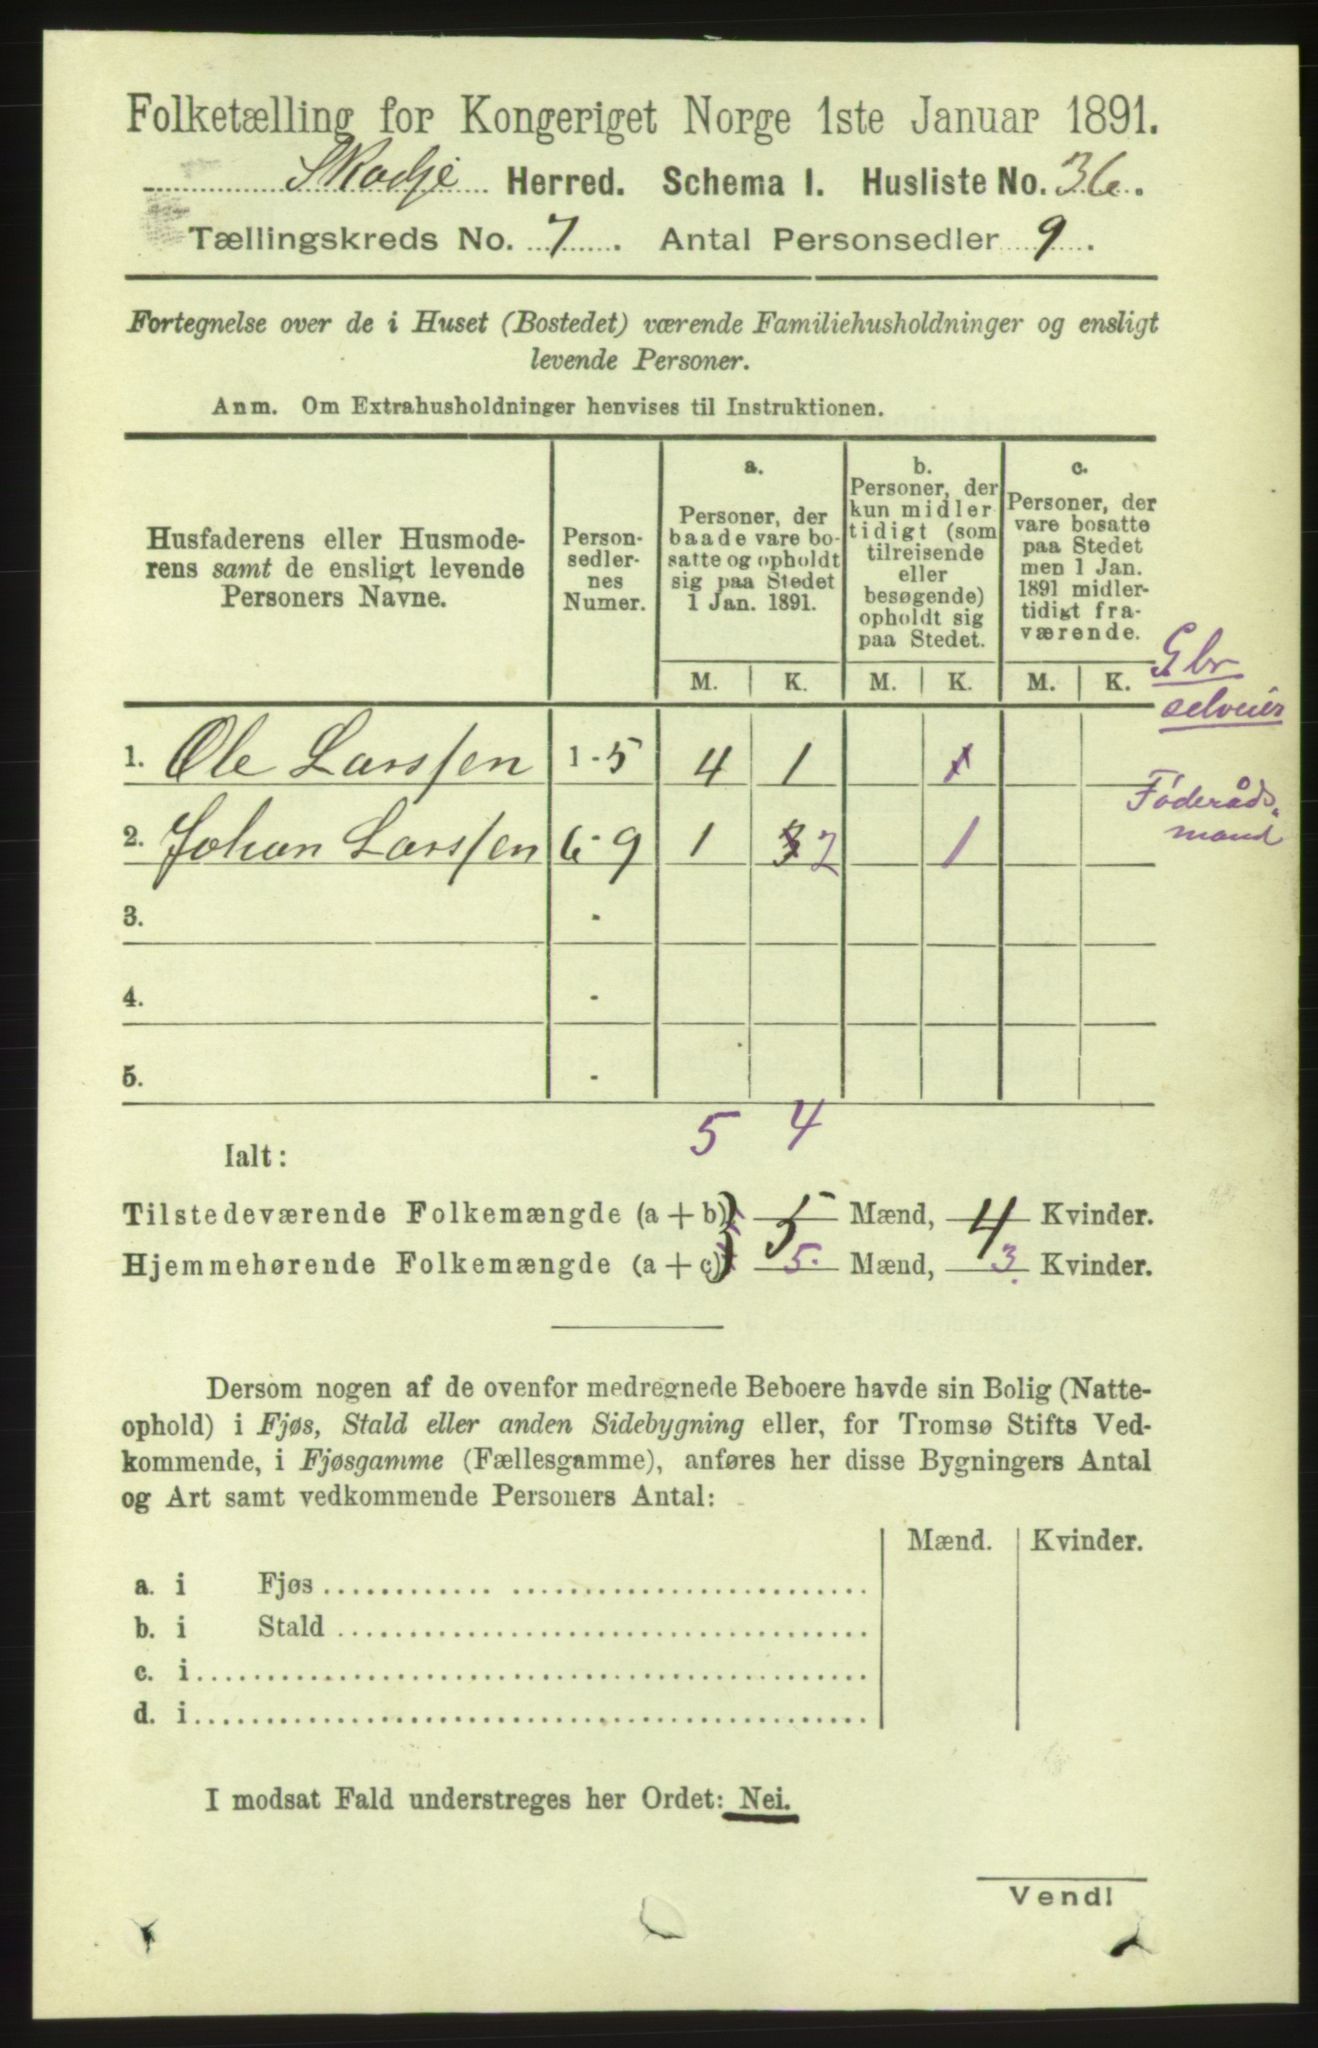 Folketælling for Kongeriget Norge 1ste Januar 1891.
Skodje Herred. Schema 1. Husliste No. 36.
Tællingskreds No. 7. Antal Personsedler 9.
Fortegnelse over de i Huset (Bostedet) værende Familiehusholdninger og ensligt
levende Personer.
Anm. Om Extrahusholdninger henvises til Instruktionen.
Husfaderens eller Husmode-
rens samt de ensligt levende
Personers Navne.
Person-
sedler-
nes
Numer.
a.
Personer, der
baade vare bo-
satte og opholdt
sig paa Stedet
1 Jan. 1891.
b.
Personer, der
kun midler
tidigt (som
tilreisende
eller
besøgende)
opholdt sig
paa Stedet.
c.
Personer, der
vare bosatte
paa Stedet
men 1 Jan.
1891 midler-
tidigt fra-
værende.
M. K. M. K. M. K.
Gbr
selveier
1. Ole Larssen 1-5 4 1 1
Føderåds-
mand
2. Johan Larssen 6-9 1 3 2 1
3. -
4. -
5. -
5 4
Ialt:
Tilstedeværende Folkemængde (a + b) 5 Mænd, 4 Kvinder.
Hjemmehørende Folkemængde (a + c) 5. Mænd, 3. Kvinder.
Dersom nogen af de ovenfor medregnede Beboere havde sin Bolig (Natte-
ophold) i Fjøs, Stald eller anden Sidebygning eller, for Tromsø Stifts Ved-
kommende, i Fjøsgamme (Fællesgamme), anføres her disse Bygningers Antal
og Art samt vedkommende Personers Antal:
Mænd. Kvinder.
a. i Fjøs
b. i Stald
c. i
d. i
I modsat Fald understreges her Ordet: Nei.
Vend!